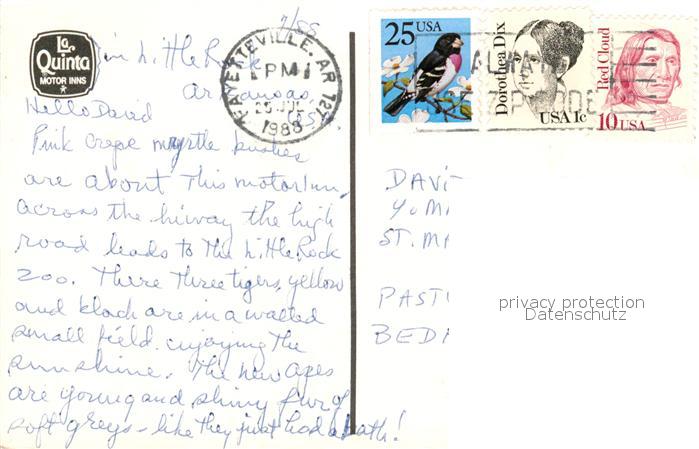 La
Quinta
MOTOR INNS
7/88
in Little Rock
Arkansas
USA
Hello David
Pink crepe myrtle bushes
are about this motor Inn,
across the hiway the high
road leads to the Little Rock
zoo. There three tigers, yellow
and black are in a walled
small field enjoying the
sunshine. The new apes
are young and shiny fur of
soft greys - like they just had a bath!
FAYETTEVILLE, AR 727
PM
25 JUL
1988
25 USA
Dorothea Dix
USA 1c
Red Cloud
10 USA
ALWAYS
DAVI
YOMA
ST. MA
PASTI
BEDI
privacy protection
Datenschutz